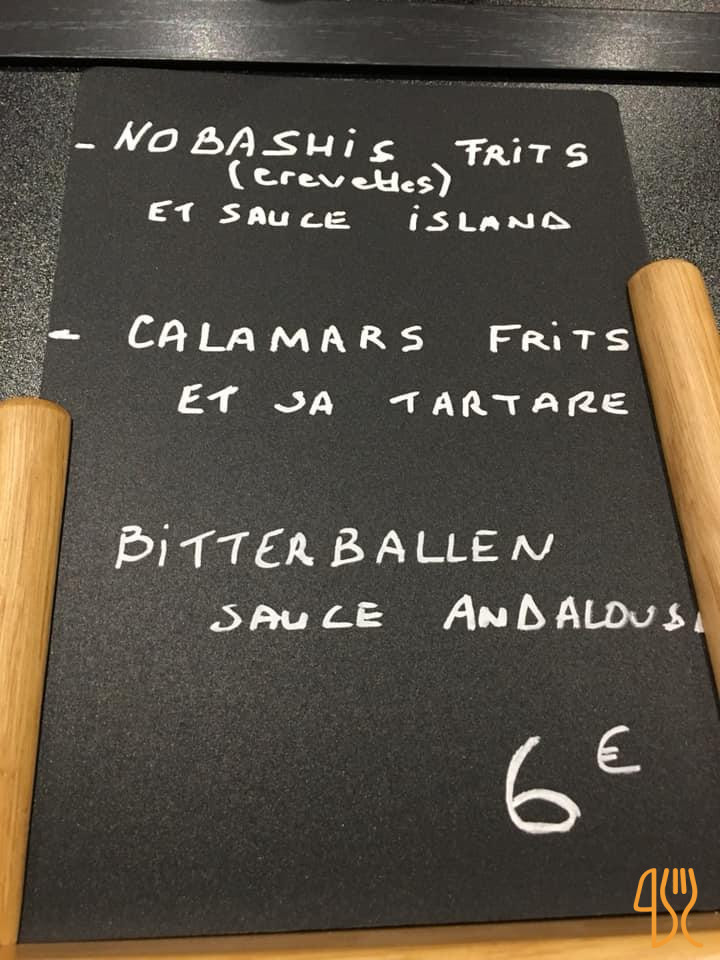 - NOBASHIS FRITS
(crevettes)
ET SAUCE ISLAND
- CALAMARS FRITS
ET SA TARTARE
BITTERBALLEN
SAUCE ANDALOUSE
6€